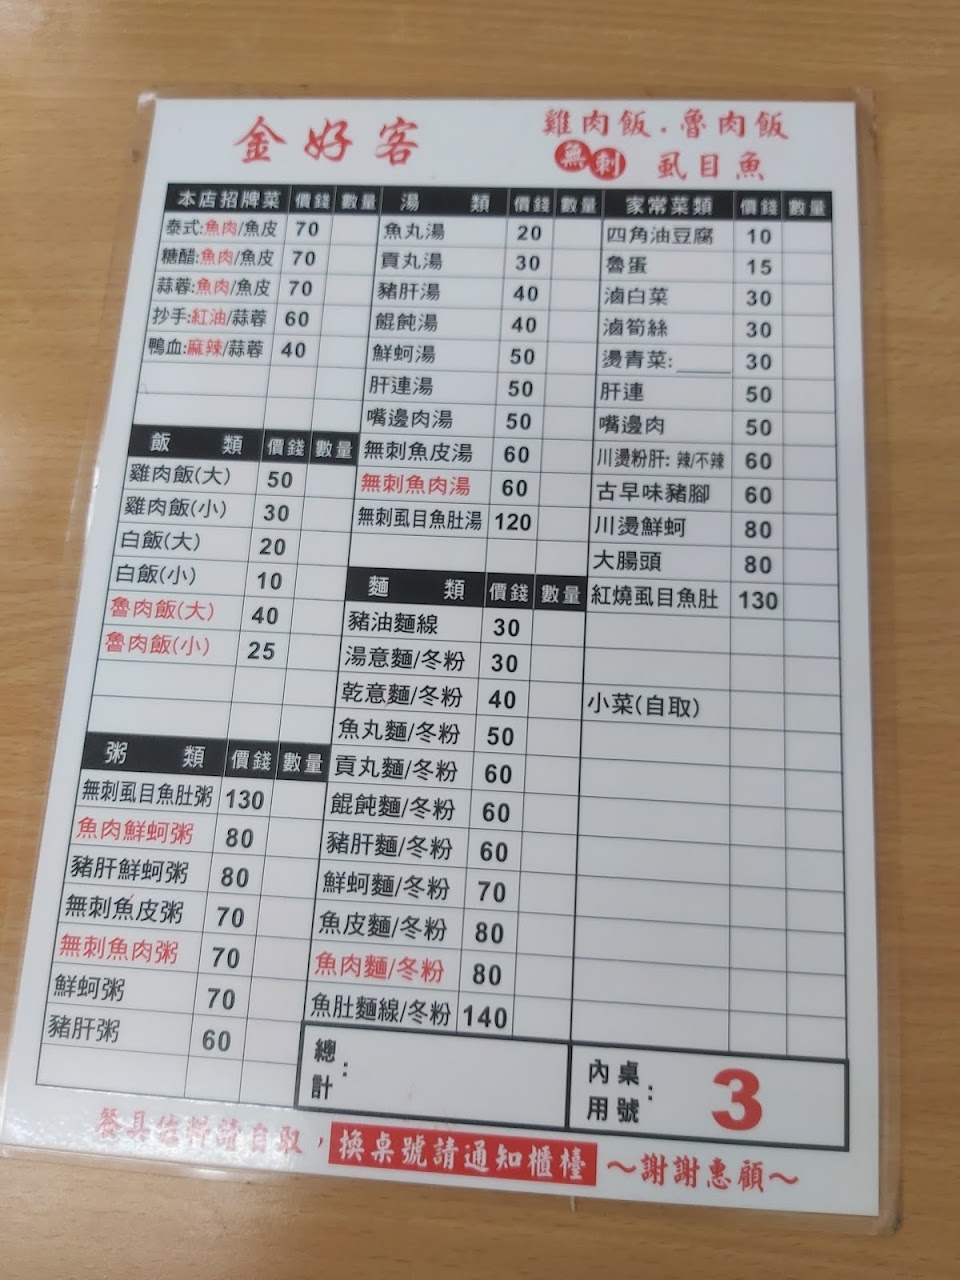 金好客
雞肉飯.魯肉飯
無刺 虱目魚
本店招牌菜 價錢 數量
泰式:魚肉/魚皮 70
糖醋:魚肉/魚皮 70
蒜蓉:魚肉/魚皮 70
抄手:紅油/蒜蓉 60
鴨血:麻辣/蒜蓉 40
飯類 價錢 數量
雞肉飯(大) 50
雞肉飯(小) 30
白飯(大) 20
白飯(小) 10
魯肉飯(大) 40
魯肉飯(小) 25
粥類 價錢 數量
無刺虱目魚肚粥 130
魚肉鮮蚵粥 80
豬肝鮮蚵粥 80
無刺魚皮粥 70
無刺魚肉粥 70
鮮蚵粥 70
豬肝粥 60
湯類 價錢 數量
魚丸湯 20
貢丸湯 30
豬肝湯 40
餛飩湯 40
鮮蚵湯 50
肝連湯 50
嘴邊肉湯 50
無刺魚皮湯 60
無刺魚肉湯 60
無刺虱目魚肚湯 120
麵類 價錢 數量
豬油麵線 30
湯意麵/冬粉 30
乾意麵/冬粉 40
魚丸麵/冬粉 50
貢丸麵/冬粉 60
餛飩麵/冬粉 60
豬肝麵/冬粉 60
鮮蚵麵/冬粉 70
魚皮麵/冬粉 80
魚肉麵/冬粉 80
魚肚麵線/冬粉 140
家常菜類 價錢 數量
四角油豆腐 10
魯蛋 15
滷白菜 30
滷筍絲 30
燙青菜:____ 30
肝連 50
嘴邊肉 50
川燙粉肝: 辣/不辣 60
古早味豬腳 60
川燙鮮蚵 80
大腸頭 80
紅燒虱目魚肚 130
小菜(自取)
總計:
內用桌號: 3
餐具佐料請自取,換桌號請通知櫃檯 ~謝謝惠顧~